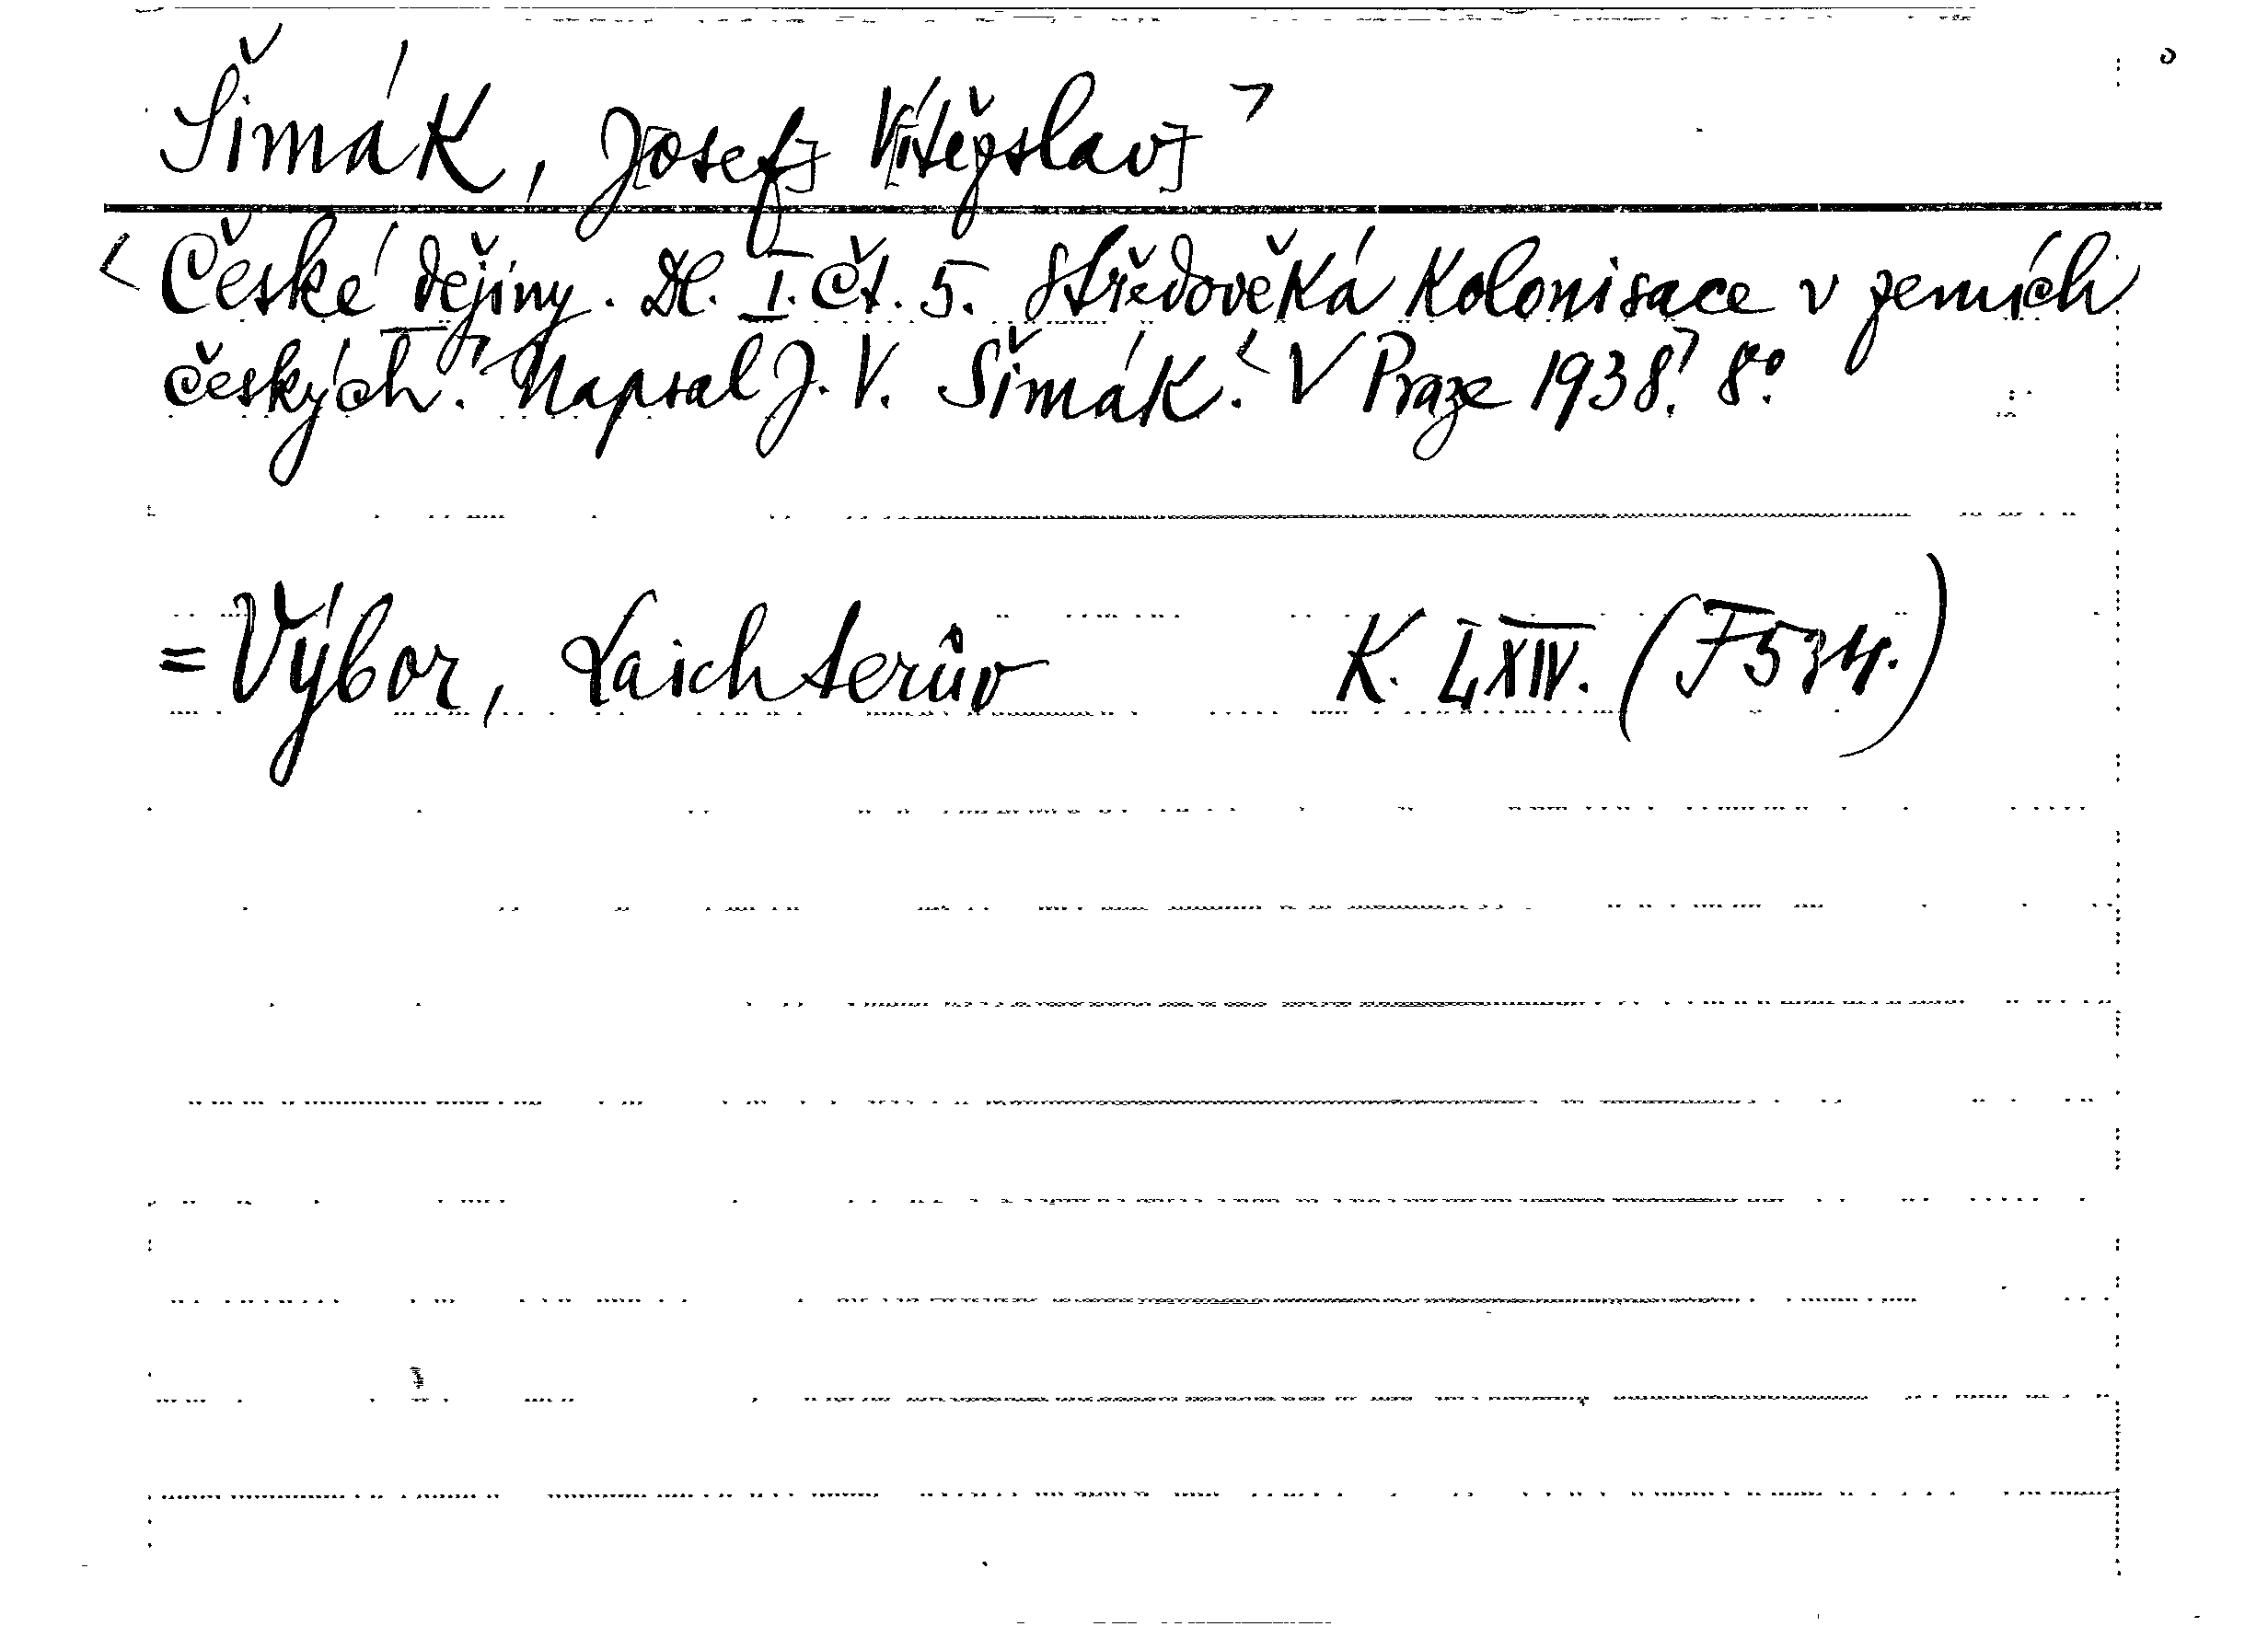 Šimák, J[osef] V[ítězslav]
České dějiny. Dl. I. čt. 5. Středověká kolonisace v zemích
českých. Napsal J. V. Šimák. V Praze 1938. 8°.
= Výbor, Laichterův K. LXIV. (F 534.)